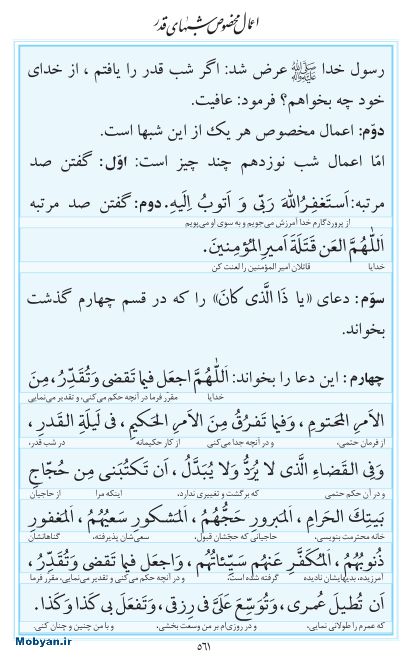 اعمال مخصوص شبهای قدر
رسول خدا ﷺ عرض شد: اگر شب قدر را یافتم ، از خدای
خود چه بخواهم؟ فرمود: عافیت.
دوّم: اعمال مخصوص هر یک از این شبها است.
امّا اعمال شب نوزدهم چند چیز است: اوّل: گفتن صد
مرتبه: اَستَغفِرُاللهَ رَبّی وَ اَتوبُ اِلَیهِ. دوم: گفتن صد مرتبه
از پروردگارم خدا آمرزش می‌جویم و به سوی او می‌پویم
اَللّٰهُمَّ العَن قَتَلَةَ اَمیرِ المُؤمِنینَ.
خدایا قاتلان امیر المؤمنین را لعنت کن
سوّم: دعای «یا ذَا الَّذی کانَ» را که در قسم چهارم گذشت
بخواند.
چهارم: این دعا را بخواند: اَللّٰهُمَّ اجعَل فیما تَقضی وَتُقَدِّرُ، مِنَ
خدایا مقرر فرما در آنچه حکم می‌کنی، و تقدیر می‌نمایی
الاَمرِ المَحتومِ، وَفیما تَفرُقُ مِنَ الاَمرِ الحَکیمِ، فی لَیلَةِ القَدرِ،
از فرمان حتمی، و در آنچه جدا می‌کنی از کار حکیمانه در شب قدر،
وَفِی القَضاءِ الَّذی لا یُرَدُّ وَلا یُبَدَّلُ، اَن تَکتُبَنی مِن حُجّاجِ
و در آن حکم حتمی که برگشت و تغییری ندارد، اینکه مرا از حاجیان
بَیتِکَ الحَرامِ، اَلمَبرورِ حَجُّهُم، اَلمَشکورِ سَعیُهُم، اَلمَغفورِ
خانه محترمت بنویسی، حاجیانی که حجّشان قبول، سعی‌شان پذیرفته، گناهانشان
ذُنوبُهُم، اَلمُکَفَّرِ عَنهُم سَیِّئاتُهُم، وَاجعَل فیما تَقضی وَتُقَدِّرُ،
آمرزیده، بدیهایشان نادیده گرفته شده است، و در آنچه حکم می‌کنی و تقدیر می‌نمایی، مقرر فرما
اَن تُطیلَ عُمری، وَتُوَسِّعَ عَلَیَّ فی رِزقی، وَتَفعَلَ بی کَذا وَکَذا.
که عمرم را طولانی نمایی، و در روزی‌ام بر من وسعت بخشی، و با من چنین و چنان کنی.
Mobyan.ir
۵۶۱